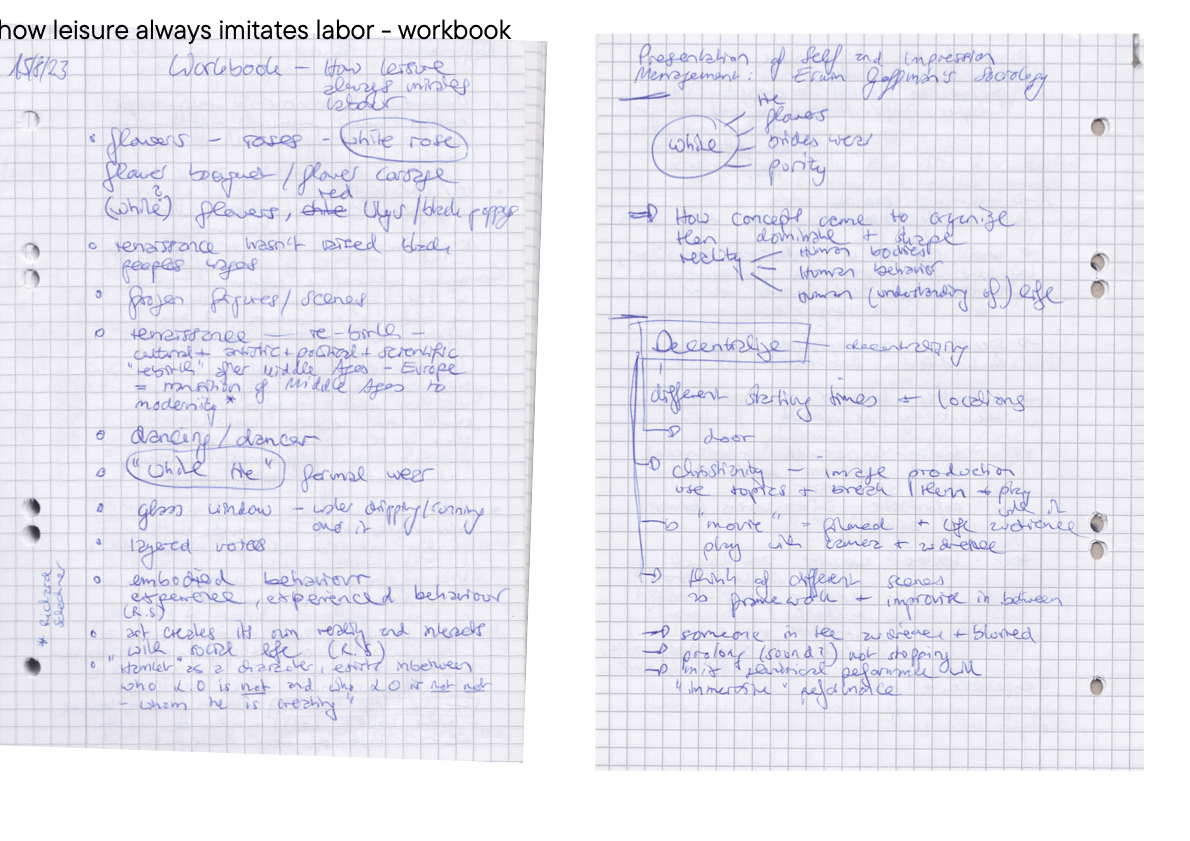 how leisure always imitates labor - workbook
15/8/23
Workbook – How leisure
always imitates
labour
• flowers – roses – white rose
flower bouquet / flower corsage
?
red
(white) flowers, lilys / black poppys
• renaissance wasn't raised black
peoples wages
• frozen figures / scenes
• renaissance — re-birth –
cultural + artistic + political + scientific
"rebirth" after Middle Ages – Europe
= transition of Middle Ages to
modernity *
• dancing / dancer
• "white He" formal wear
• glass window – water dripping / running
onto it
• layered voices
• embodied behaviour
experience, experienced behaviour
(R.S)
• art creates its own reality and interacts
with social life (R.S)
• "Hamlet" as a character, exists inbetween
who L.O is not and who L.O is not not
– whom he is creating"
* Richard
Schechner
Presentation of Self and Impression
Management: Erwin Goffman's Sociology
white
He
flowers
brides wear
purity
⇒ How concept came to organize
then dominate + shape
reality
Human bodies
Human behavior
Human (understanding of) life
Decentralize – decentralizing
different starting times + locations
→ door
→ christianity – image production
use topics + break them + play
with it
→ "movie" – filmed + life audience
play with camera + audience
→ think of different scenes
framework + improvise in between
→ someone in the audience + blurred
→ prolong (sound?) not stopping
→ mix theatrical performance with
"immersive" performance